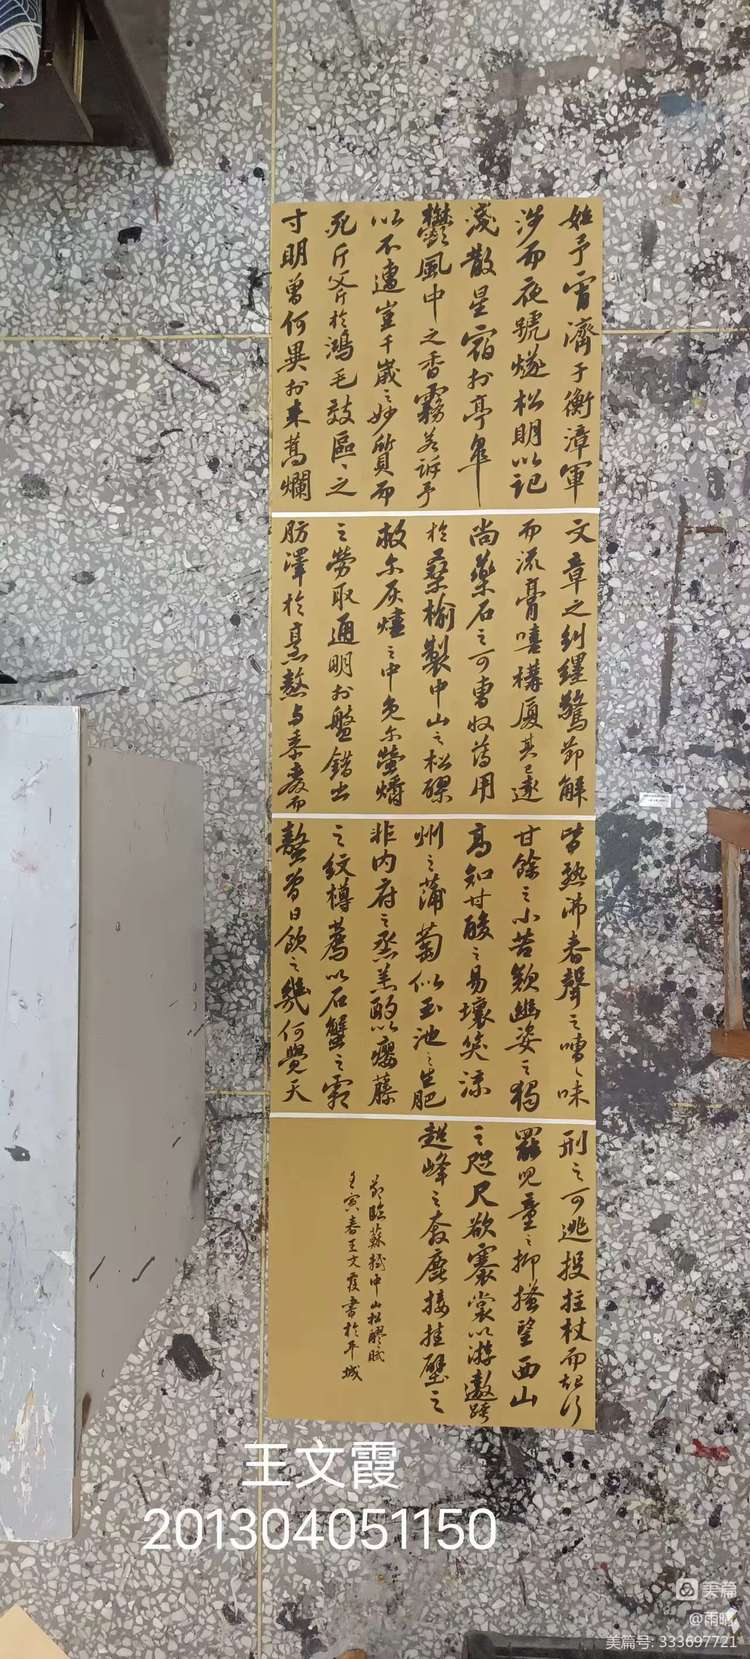 始予宵濟于衡漳軍
涉而夜號燧松明以記
淺散星宿於亭皋
鬱風中之香霧若訴予
以不遭豈千歲之妙質而
死斤斧於鴻毛效區〻之
寸明曾何異於束蒿爛
文章之糾纏驚節解
而流膏嘻構廈其已遠
尚藥石之可曹收薄用
於桑榆製中山之松醪
救尔灰燼之中免尔螢爝
之勞取通明於盤錯出
肪澤於烹熬与黍麥而
皆熟沸舂聲之嘈〻味
甘餘之小苦歎幽姿之獨
高知甘酸之易壞笑涼
州之蒲萄似玉池之生肥
非内府之烝羔酌以癭藤
之紋樽薦以石蟹之霜
螯曾日飲之幾何覺天
刑之可逃投拄杖而起行
罷兒童之抑搔望西山
之咫尺欲褰裳以游遨跨
超峰之奔鹿接挂壁之
節臨蘇軾中山松醪賦
壬寅春王文霞書於平城
王文霞
201304051150
美篇
@雨晴
美篇号: 333697721